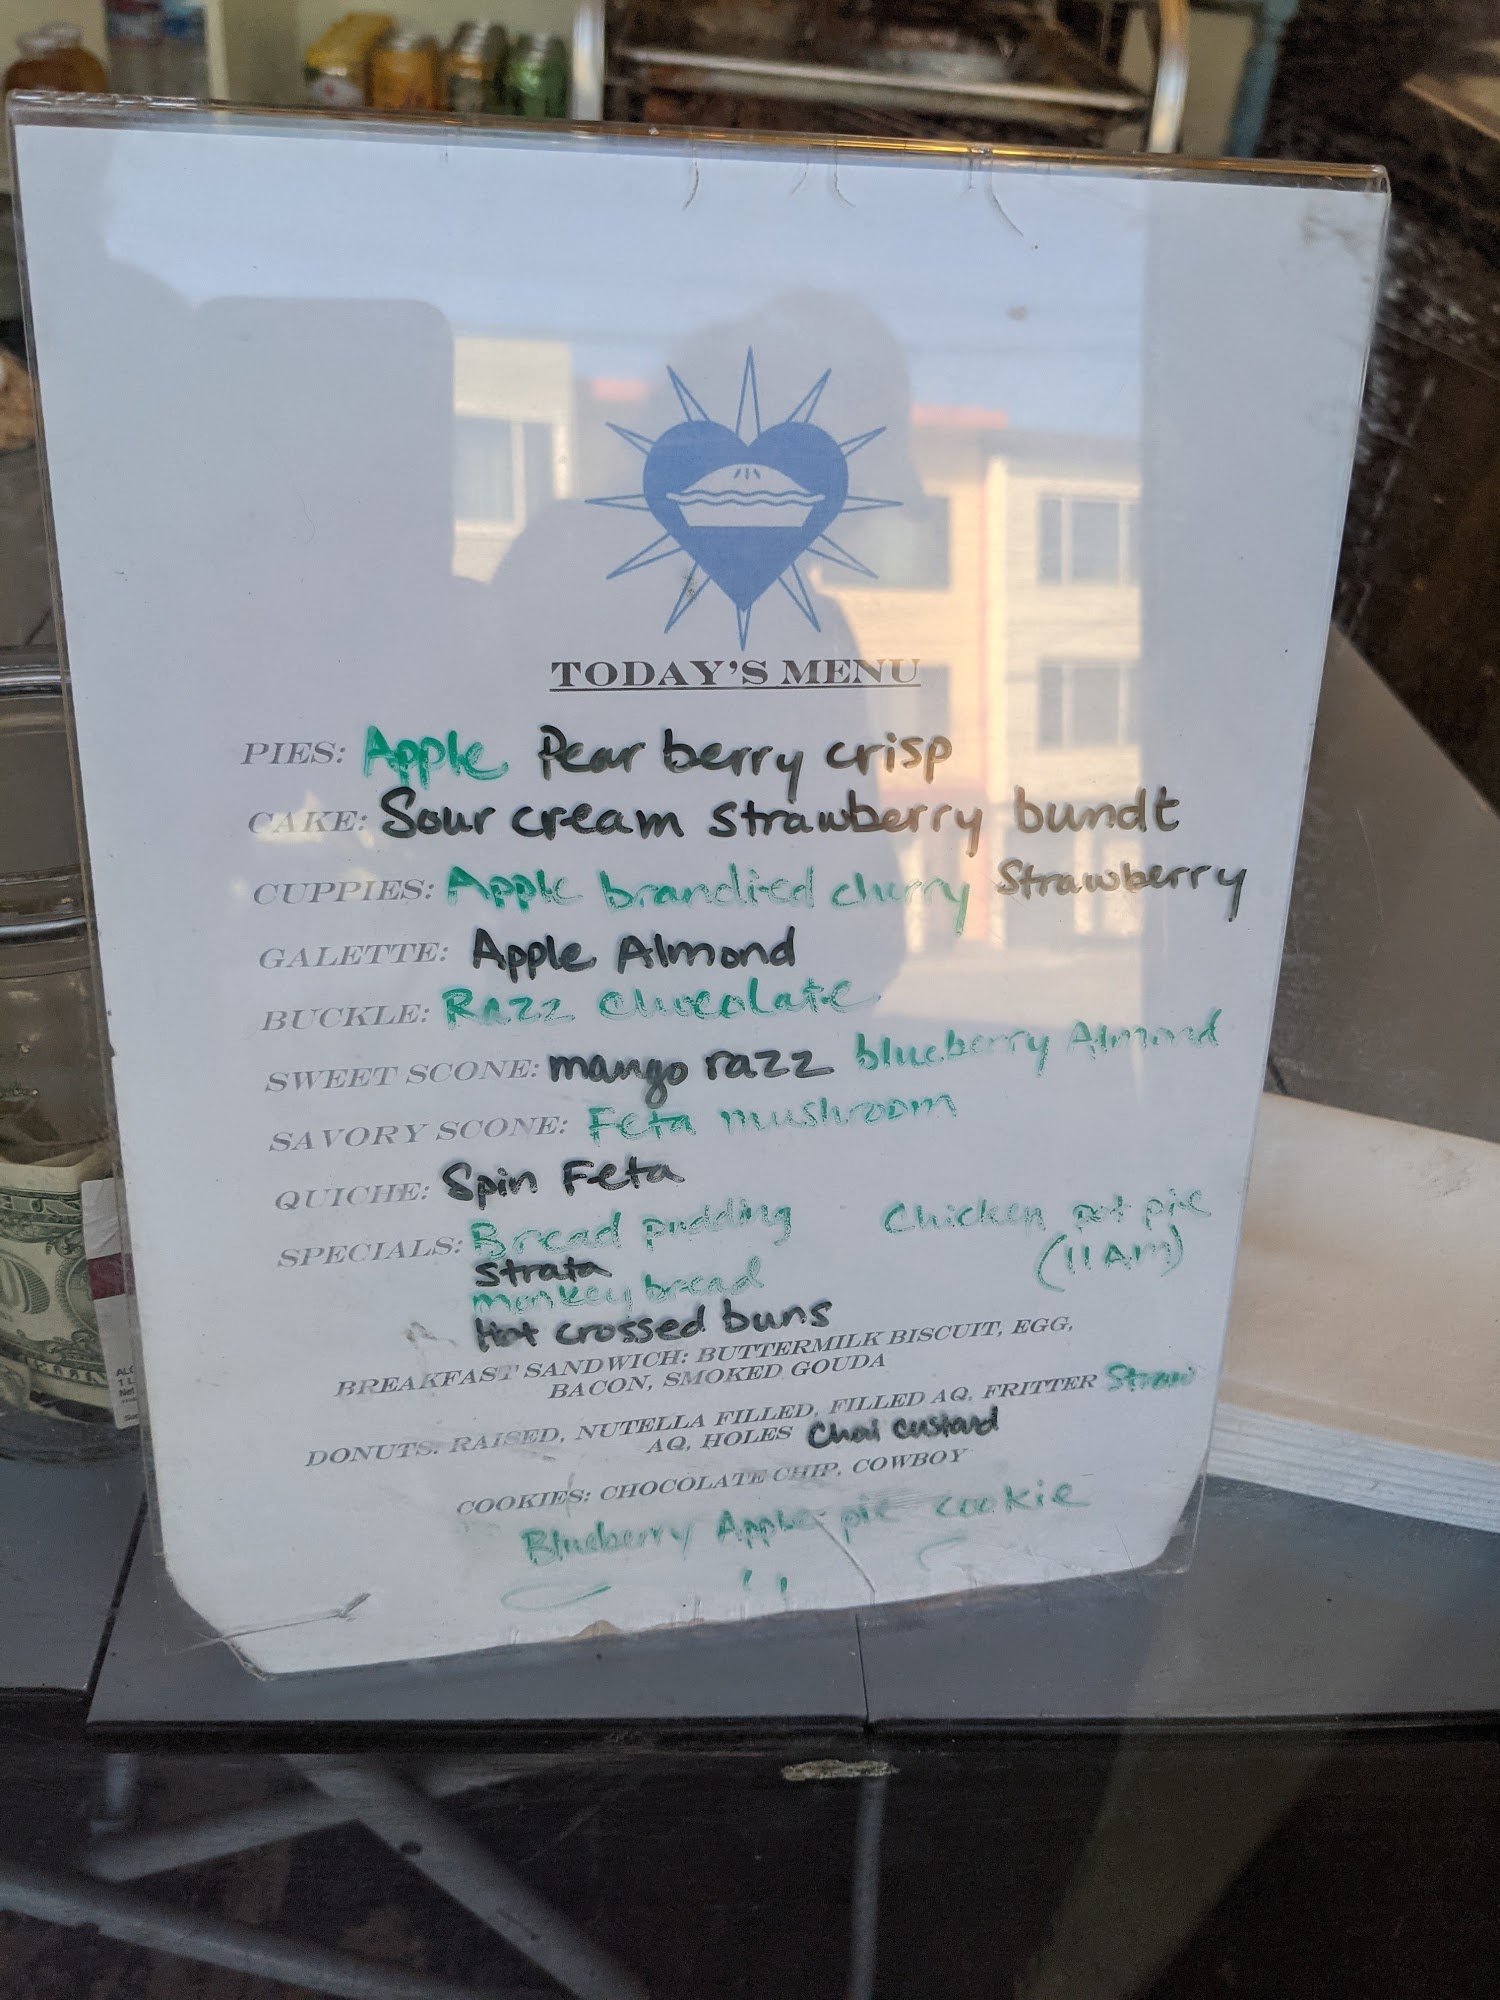 TODAY'S MENU
PIES: Apple Pear berry crisp
CAKE: Sour cream strawberry bundt
CUPPIES: Apple brandied cherry Strawberry
GALETTE: Apple Almond
BUCKLE: Razz chocolate
SWEET SCONE: mango razz blueberry Almond
SAVORY SCONE: Feta mushroom
QUICHE: Spin Feta
SPECIALS: Bread pudding Chicken pot pie
Strata (11AM)
monkey bread
Hot crossed buns
BREAKFAST SANDWICH: BUTTERMILK BISCUIT, EGG,
BACON, SMOKED GOUDA
DONUTS: RAISED, NUTELLA FILLED, FILLED AQ, FRITTER Straw
AQ, HOLES Chai custard
COOKIES: CHOCOLATE CHIP, COWBOY
Blueberry Apple pie cookie